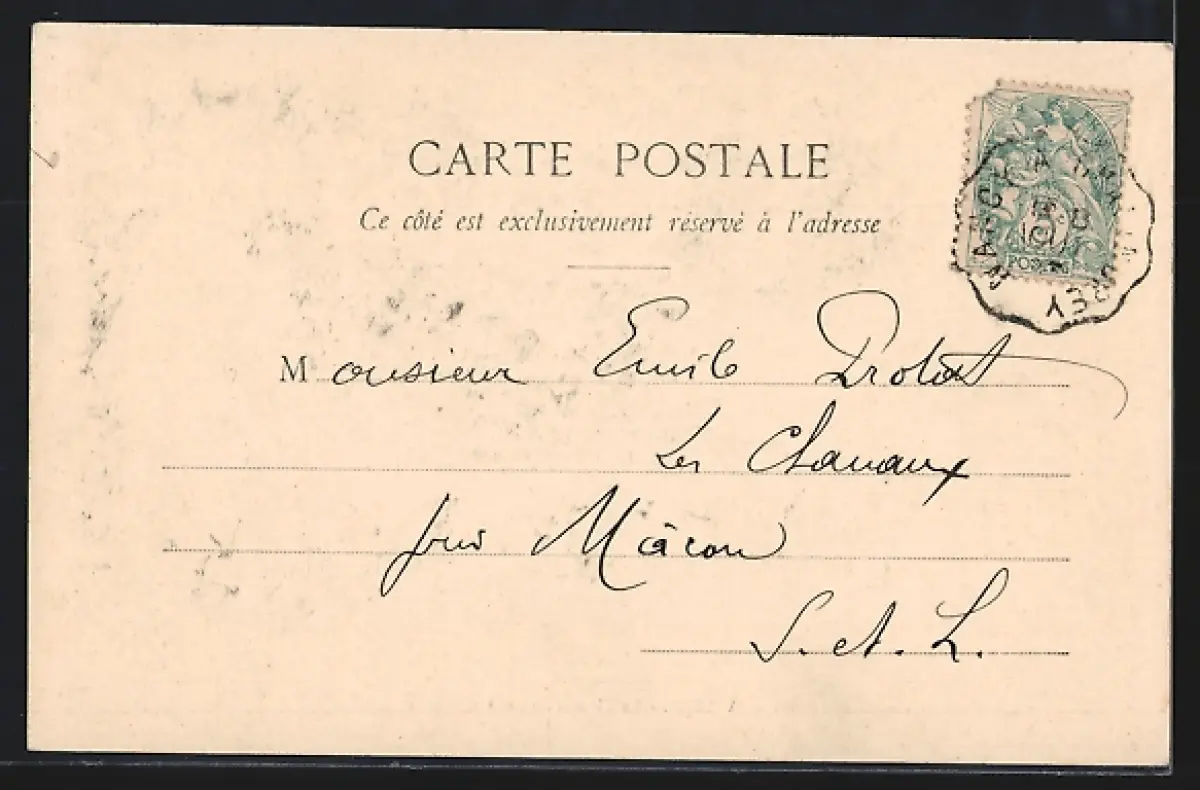 CARTE POSTALE
Ce côté est exclusivement réservé à l'adresse
POSTES
Monsieur Emile Probat
Les Chanaux
près Mâcon
S. et. L.